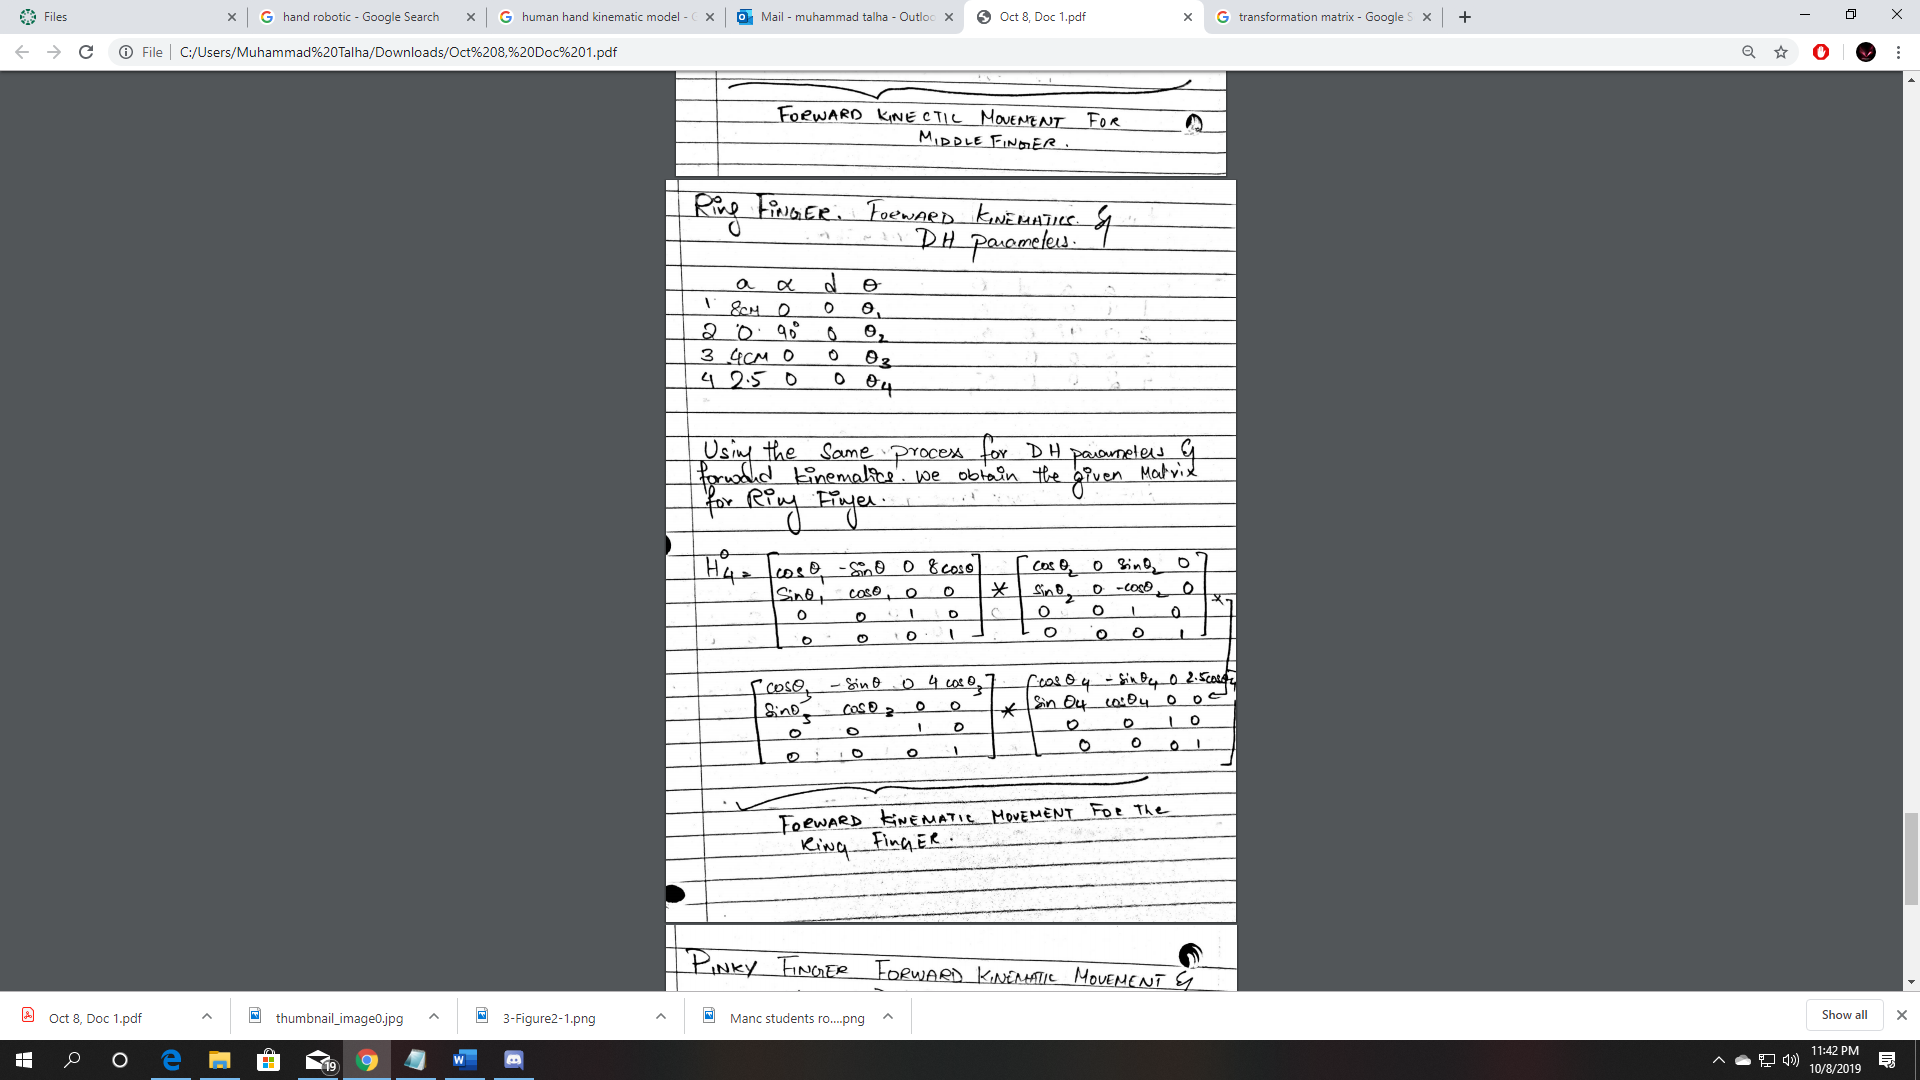 Files
hand robotic - Google Search
human hand kinematic model - G
Mail - muhammad talha - Outloo
Oct 8, Doc 1.pdf
transformation matrix - Google S
File | C:/Users/Muhammad%20Talha/Downloads/Oct%208,%20Doc%201.pdf
FORWARD KINECTIC MOVEMENT FOR
MIDDLE FINGER.
Ring FINGER. FORWARD KINEMATICS &
DH parameters.
a α d θ
1 8CM 0 0 θ₁
2 0 90° 0 θ₂
3 4CM 0 0 θ₃
4 2.5 0 0 θ₄
Using the Same process for DH parameters &
forward kinematics. we obtain the given Matrix
for Ring Finger.
H⁰₄ = [cosθ₁ -Sinθ 0 8cosθ] [cosθ₂ 0 sinθ₂ 0]
[Sinθ₁ cosθ₁ 0 0] * [sinθ₂ 0 -cosθ₂ 0] *
[0 0 1 0] [0 0 1 0]
[0 0 0 1] [0 0 0 1]
[cosθ₃ -sinθ 0 4cosθ₃] [cosθ4 -sinθ4 0 2.5cosθ4]
[Sinθ₃ cosθ₃ 0 0] * [sinθ4 cosθ4 0 0]
[0 0 1 0] [0 0 1 0]
[0 0 0 1] [0 0 0 1]
FORWARD KINEMATIC MOVEMENT FOR The
RING FINGER.
PINKY FINGER FORWARD KINEMATIC MOVEMENT &
Oct 8, Doc 1.pdf
thumbnail_image0.jpg
3-Figure2-1.png
Manc students ro....png
Show all
19
11:42 PM
10/8/2019